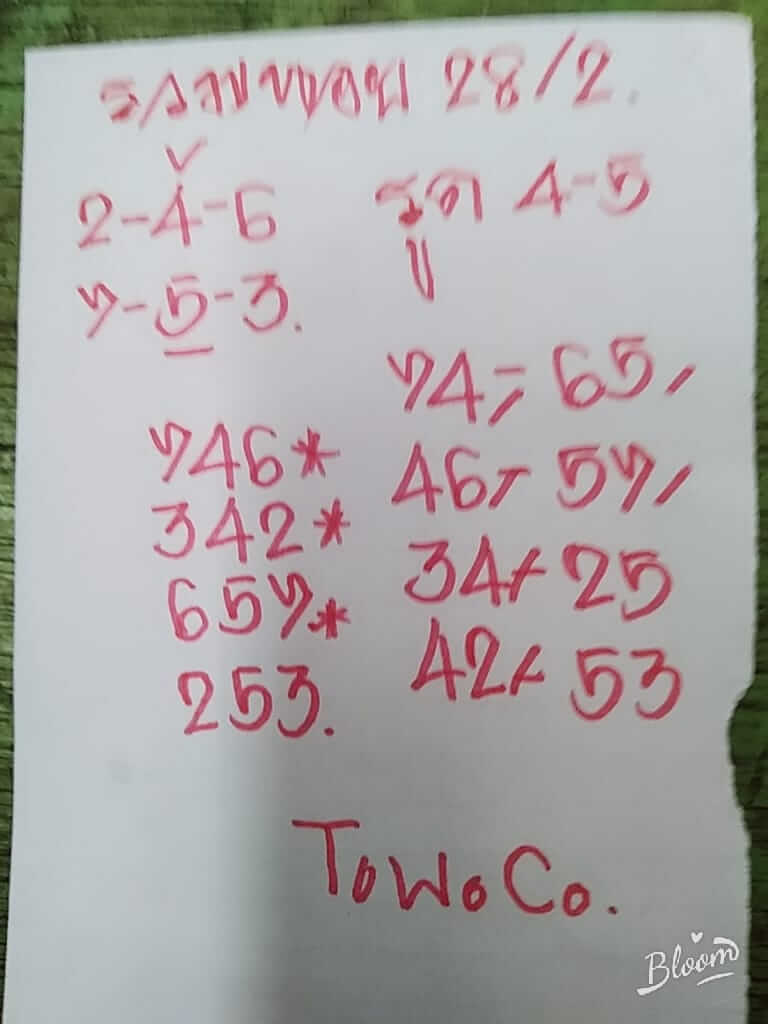 28/2.
2-4-6
7-5-3.
รูด 4-5
74, 65,
46, 57,
34, 25
42, 53
746*
342*
657*
253.
ToWoCo.
Bloom